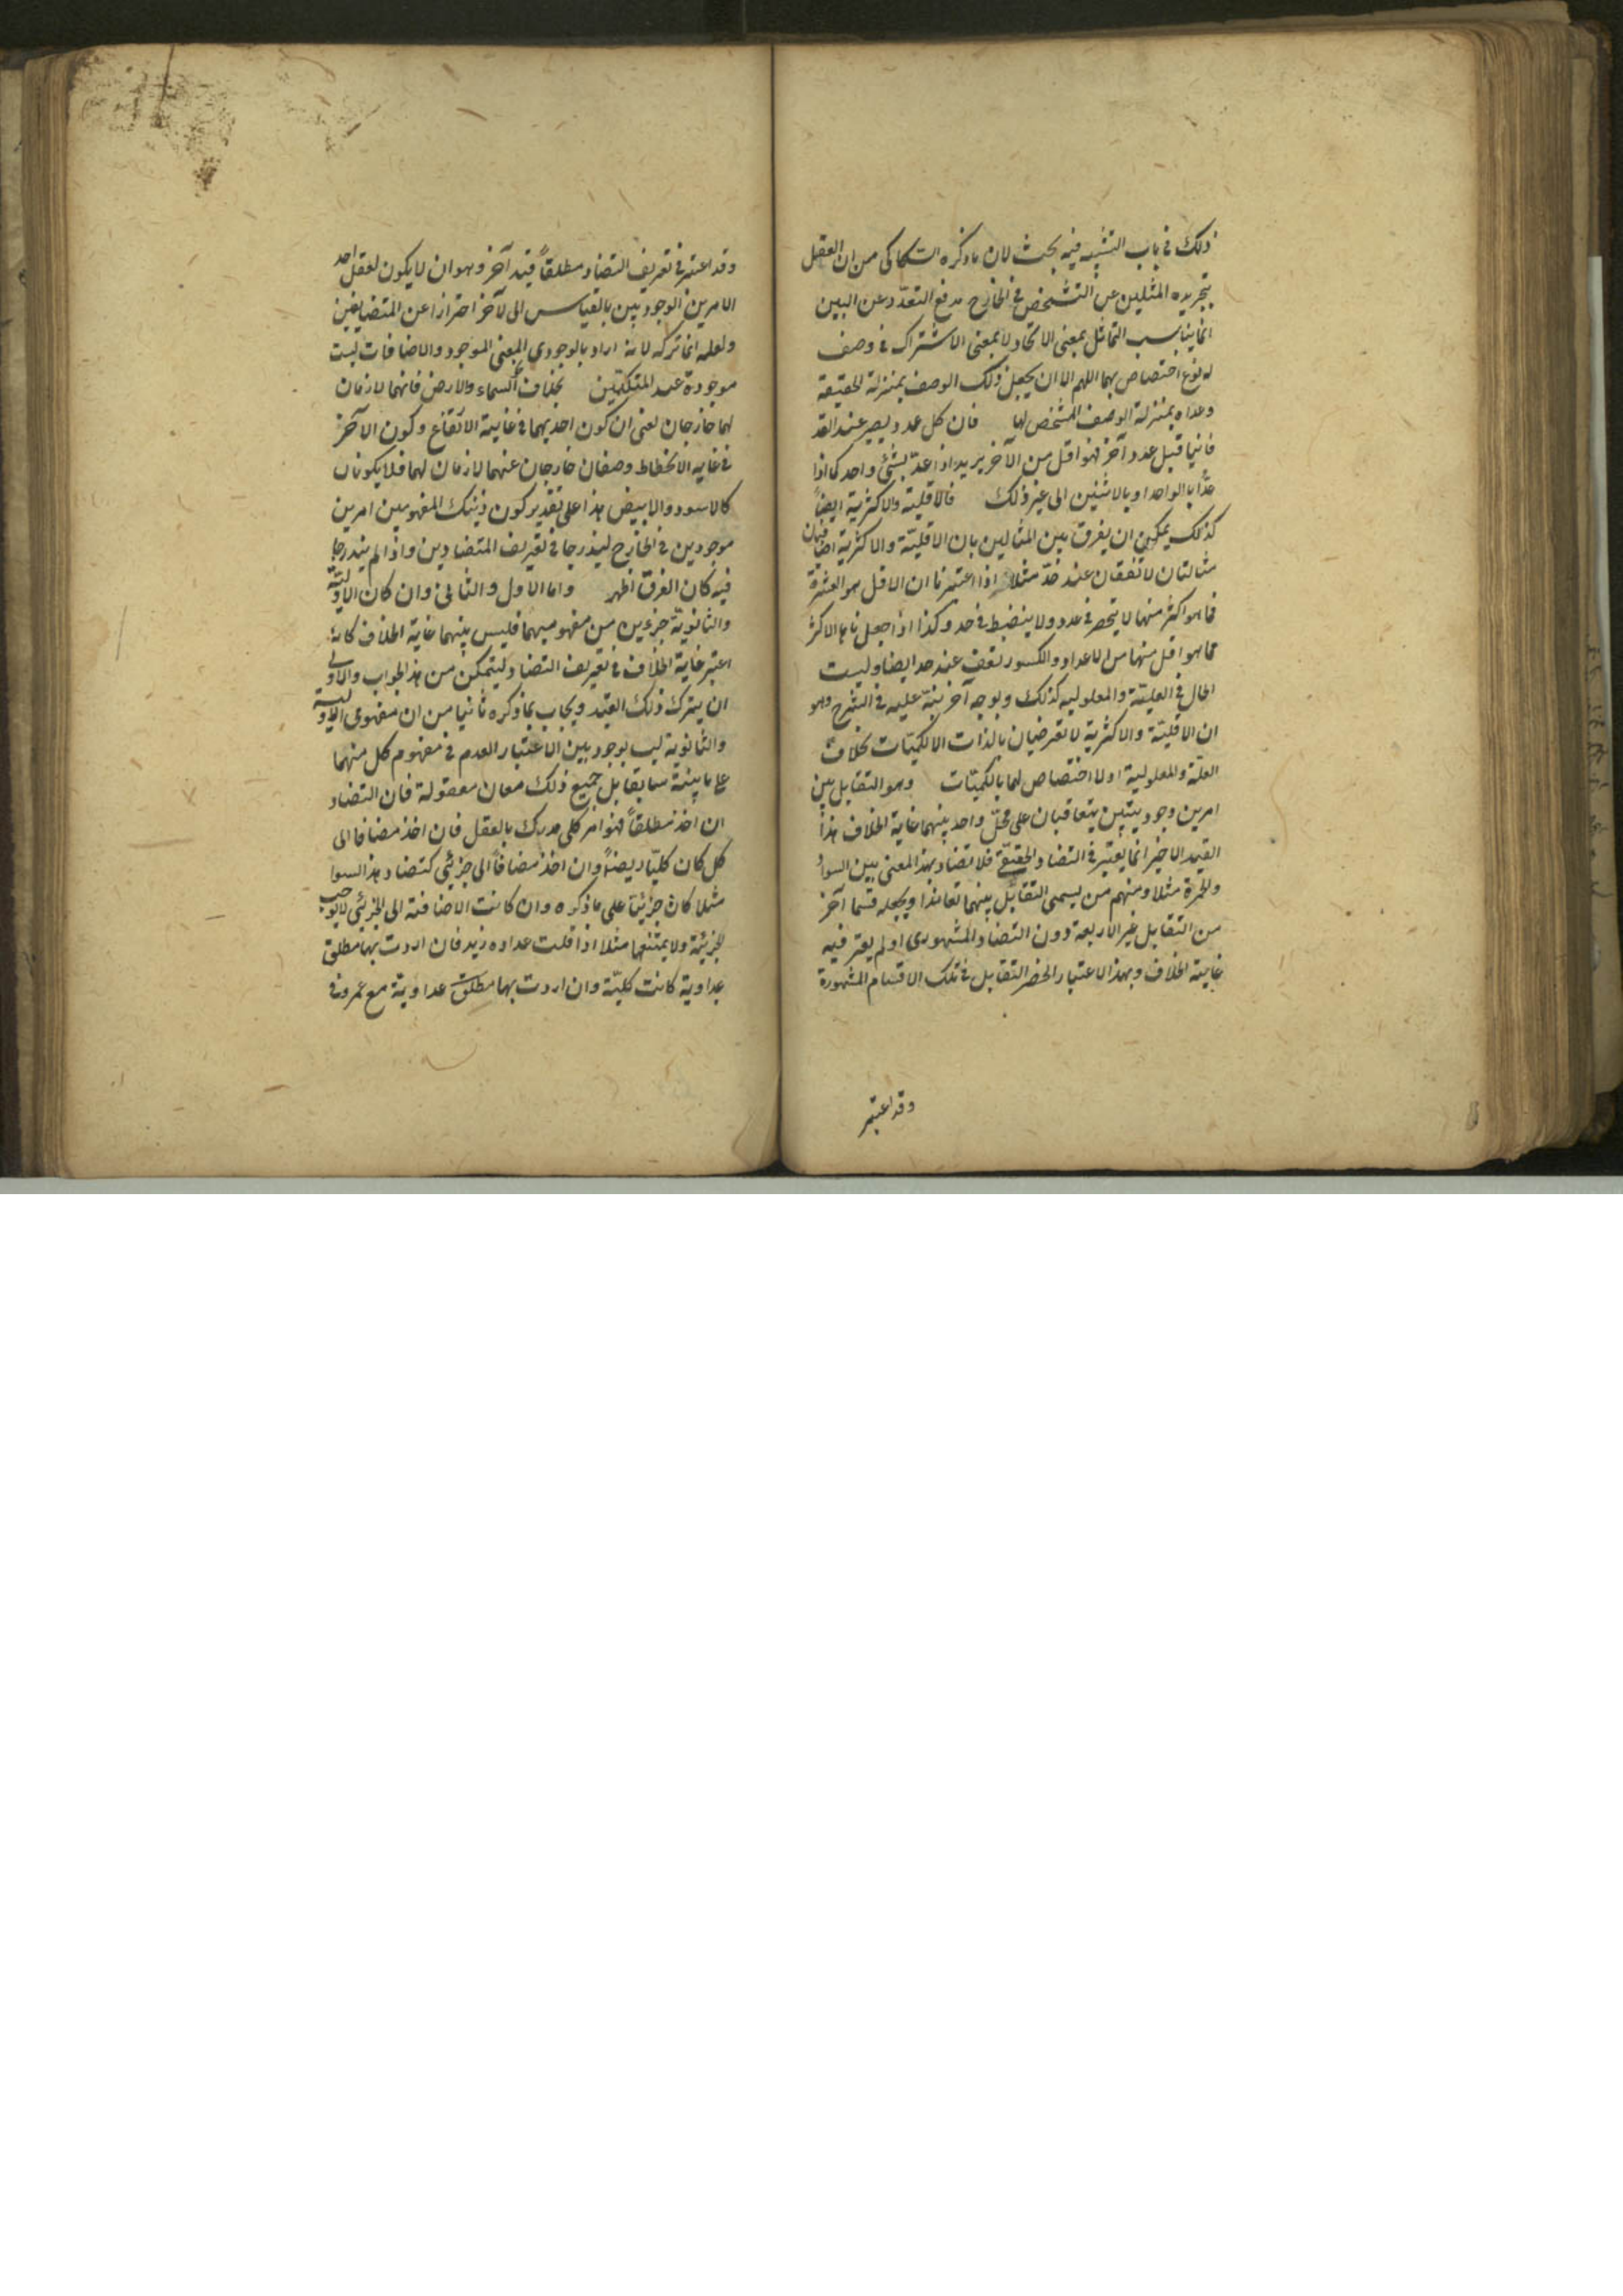 ذلك في باب التشبيه فيه بحث لان ما ذكره السكاكي من ان العقل
بتجريده المثلين عن التشخص في الخارج يدفع التعدد عن البين
انما يناسب التماثل بمعنى الاتحاد لا بمعنى الاشتراك في وصف
له نوع اختصاص بهما اللهم الا ان يجعل ذلك الوصف بمنزلة الحقيقة
وعداه بمنزلة الوصف المشخص لها فان كل عدد يصير عند العد
فانيا قبل عدد آخر فهو اقل من الآخر يريد اذا عد بشئ واحد كما اذا
عدا بالواحد او بالاثنين الى غير ذلك فالاقلية والاكثرية ايضا
كذلك يمكن ان يفرق بين المثالين بان الاقلية والاكثرية اضافيتان
لا تقفان عند حد مثلا اذا اعتبرنا ان الاقل هو العشرة
فما هو اكثر منها لا ينحصر في عدد ولا ينضبط في حد وكذا اذا جعل الاكثر
مما هو اقل منها من الاعداد والكسور تقف عند حد ايضا وليست
الحال في العلية والمعلولية كذلك وبوجه آخر نبه عليه في الشرح وهو
ان الاقلية والاكثرية لا تعرضان بالذات الا للكميات بخلاف
العلية والمعلولية اولا اختصاص لهما بالكميات وهو التقابل بين
امرين وجوديين يتعاقبان على محل واحد بينهما غاية الخلاف هذا
القيد الاخير انما يعتبر في التضاد الحقيقي فلا تضاد بهذا المعنى بين السواد
والحمرة مثلا ومنهم من يسمى التقابل بينهما تعاندا ويجعله قسما آخر
من التقابل غير الاربعة دون التضاد المشهوري اذ لم يعتبر فيه
غاية الخلاف وبهذا الاعتبار انحصر التقابل في تلك الاقسام المشهورة
وقد اعتبر
وقد اعتبر في تعريف التضاد مطلقا قيد آخر وهو ان لا يكون تعقل احد
الامرين الوجوديين بالقياس الى الآخر احترازا عن المتضايفين
ولعله انما تركه لانه اراد بالوجودي المعنى الموجود والاضافات ليست
موجودة عند المتكلمين بخلاف السماء والارض فانهما لازمان
لهما خارجان لعنى ان كون احديهما في غاية الارتفاع وكون الآخر
في غاية الانحطاط وصفان خارجان عنهما لازمان لهما فلا يكونان
كالاسود والابيض هذا على تقدير كون ذينك المفهومين امرين
موجودين في الخارج ليندرجا في تعريف المتضادين واذا لم يندرجا
فيه كان الفرق اظهر واما الاول والثاني وان كان الاولية
والثانوية جزءين من مفهوميهما فليس بينهما غاية الخلاف كانه
اعتبر غاية الخلاف في تعريف التضاد ليتمكن من هذا الجواب والاولى
ان يترك ذلك القيد ويجاب بما ذكره ثانيا من ان مفهومي الاولية
والثانوية ليسا بوجوديين لاعتبار العدم في مفهوم كل منهما
على ما بينه سابقا بل جميع ذلك معان معقولة فان التضاد
ان اخذ مطلقا فهو امر كلي مدرك بالعقل فان اخذ مضافا الى
كلي كان كليا ايضا وان اخذ مضافا الى جزئي كتضاد هذا السواد
مثلا كان جزئيا على ما ذكره وان كانت الاضافة الى الجزئي لا يوجب
الجزئية ولا يمنعها مثلا اذا قلت عداوة زيد فان اردت بها مطلق
عداوته كانت كلية وان اردت بها مطلق عداوته مع عمرو في